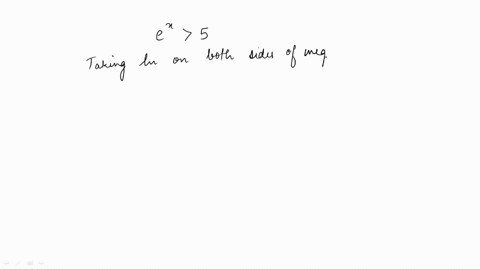 e^x > 5
Taking ln on both sides of ineq